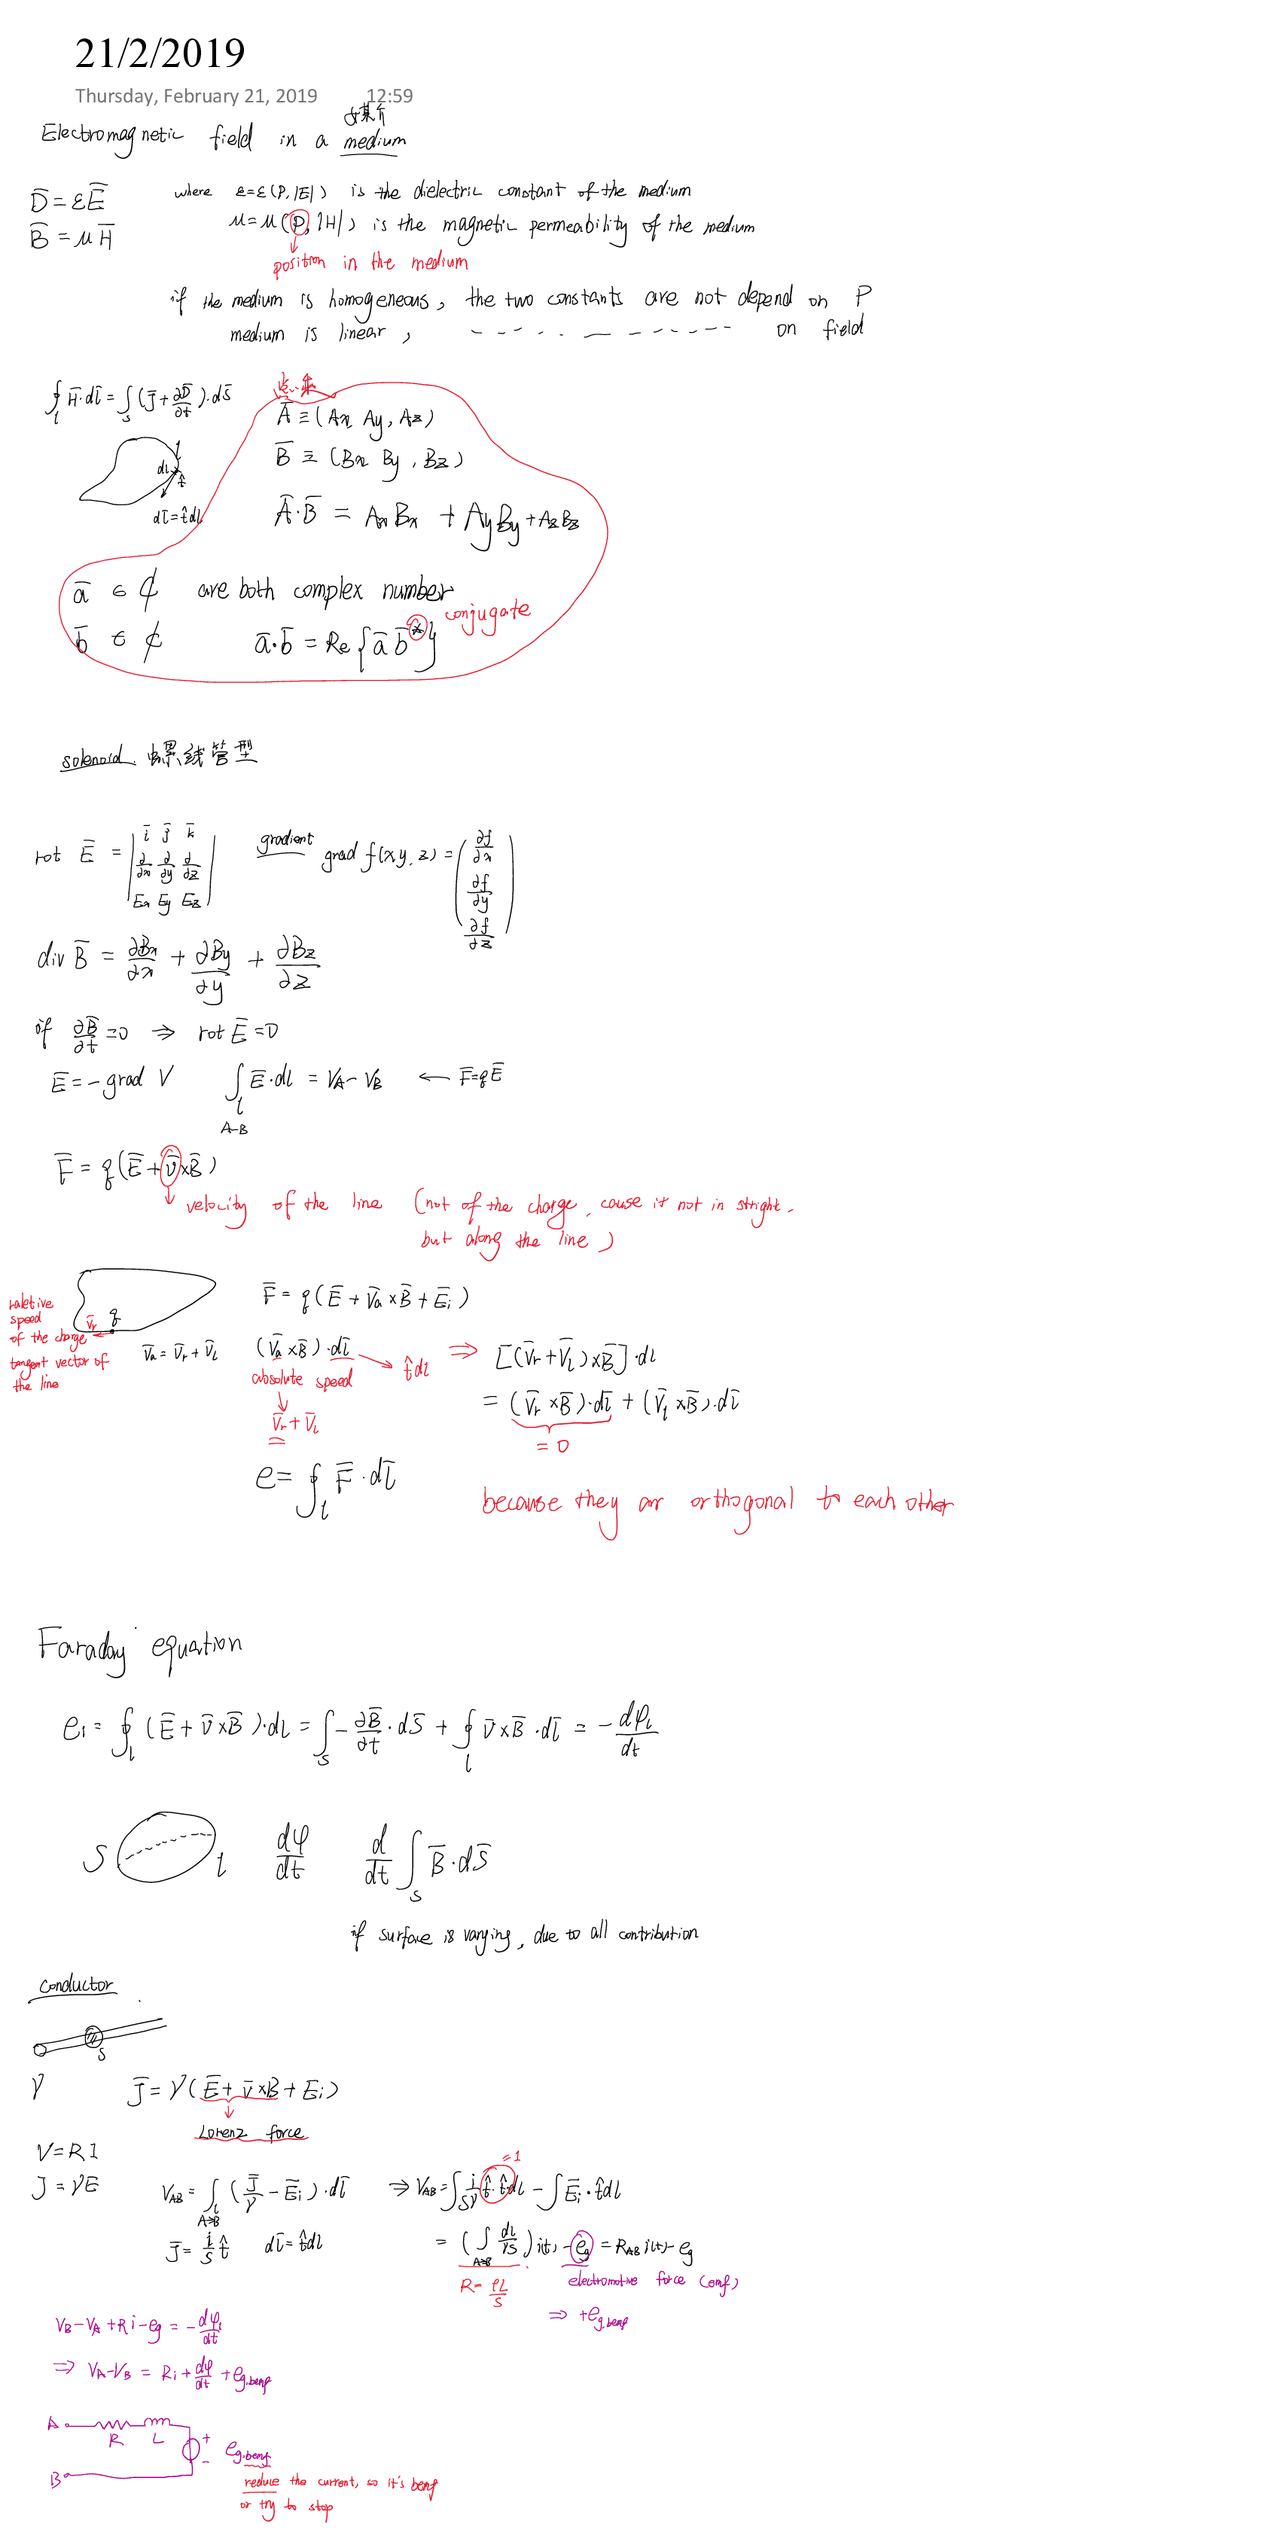 21/2/2019
Thursday, February 21, 2019 12:59
媒介
Electromagnetic field in a medium
D̄ = εĒ where ε=ε(P,|E|) is the dielectric constant of the medium
B̄ = μH̄ μ=μ(P,|H|) is the magnetic permeability of the medium
position in the medium
if the medium is homogeneous, the two constants are not depend on P
medium is linear, - - - - - - - - - - on field
点乘
∮_l H̄·dl̄ = ∫_s (J̄ + ∂D̄/∂t)·ds̄
Ā ≡ (Ax, Ay, Az)
B̄ ≡ (Bx, By, Bz)
dl t̂
dl̄ = t̂dl
Ā·B̄ = AxBx + AyBy + AzBz
ā ∈ ₵ are both complex number
b̄ ∈ ₵ ā·b̄ = Re{ā b̄*} conjugate
solenoid 螺线管型
rot Ē = | ī j̄ k̄ |
| ∂/∂x ∂/∂y ∂/∂z |
| Ex Ey Ez |
gradient grad f(x,y,z) = (∂f/∂x
∂f/∂y
∂f/∂z)
div B̄ = ∂Bx/∂x + ∂By/∂y + ∂Bz/∂z
if ∂B̄/∂t = 0 ⇒ rot Ē = 0
Ē = -grad V ∫_l Ē·dl = VA - VB ← F̄=qĒ
A-B
F̄ = q(Ē + v̄×B̄)
velocity of the line (not of the charge, cause it not in stright.
but along the line)
raletive
speed
of the charge
tangent vector of
the line
v̄r q
v̄a = v̄r + v̄l
F̄ = q(Ē + v̄a×B̄ + Ēi)
(v̄a×B̄)·dl̄ → t̂dl ⇒ [(v̄r+v̄l)×B̄]·dl
absolute speed
v̄r + v̄l
= (v̄r×B̄)·dl̄ + (v̄l×B̄)·dl̄
= 0
e = ∮_l F̄·dl̄
because they ar orthogonal to each other
Faraday equation
ei = ∮_l (Ē + v̄×B̄)·dl = ∫_s -∂B̄/∂t·ds̄ + ∮_l v̄×B̄·dl̄ = -dφi/dt
S l dφ/dt d/dt ∫_s B̄·ds̄
if surface is varying, due to all contribution
conductor
S
γ J̄ = γ(Ē + v̄×B + Ei)
Lorenz force
V = RI
J = γE
VAB = ∫_l (J̄/γ - Ēi)·dl̄
A→B
⇒ VAB = ∫ i/Sγ t̂·t̂dl - ∫Ēi·t̂dl
=1
J̄ = i/S t̂ dl̄=t̂dl
= (∫_A→B dl/γS) i(t) - eg = RAB i(t) - eg
R = ρL/S
electromotive force (emf)
⇒ +eg.bemf
VB - VA + Ri - eg = -dφi/dt
⇒ VA - VB = Ri + dφ/dt + eg.bemf
A R L
+
-
eg.bemf
B
reduce the current, so it's bemf
or try to stop